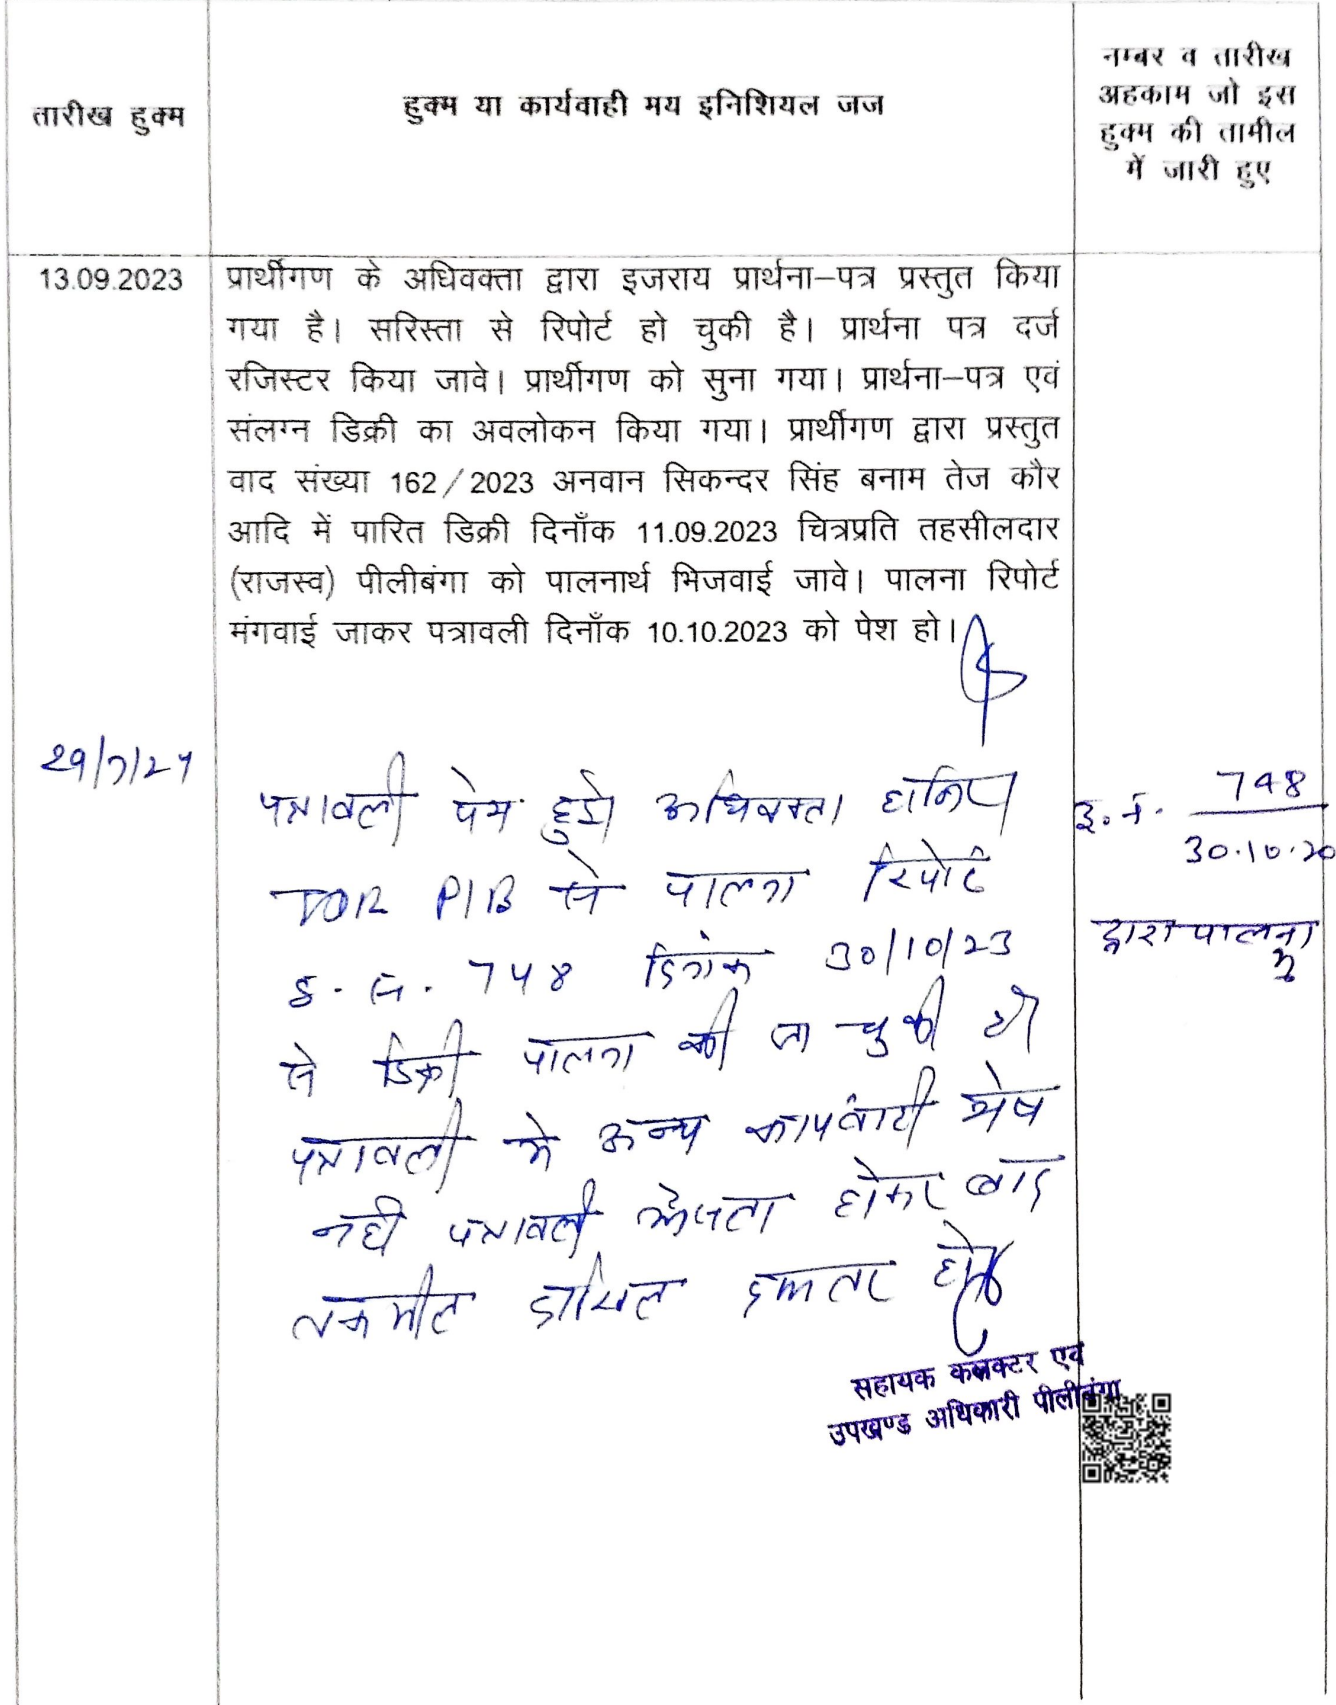 तारीख हुक्म
हुक्म या कार्यवाही मय इनिशियल जज
नम्बर व तारीख
अहकाम जो इस
हुक्म की तामील
में जारी हुए
13.09.2023
प्रार्थीगण के अधिवक्ता द्वारा इजराय प्रार्थना–पत्र प्रस्तुत किया
गया है। सरिस्ता से रिपोर्ट हो चुकी है। प्रार्थना पत्र दर्ज
रजिस्टर किया जावे। प्रार्थीगण को सुना गया। प्रार्थना–पत्र एवं
संलग्न डिक्री का अवलोकन किया गया। प्रार्थीगण द्वारा प्रस्तुत
वाद संख्या 162/2023 अनवान सिकन्दर सिंह बनाम तेज कौर
आदि में पारित डिक्री दिनाँक 11.09.2023 चित्रप्रति तहसीलदार
(राजस्व) पीलीबंगा को पालनार्थ भिजवाई जावे। पालना रिपोर्ट
मंगवाई जाकर पत्रावली दिनाँक 10.10.2023 को पेश हो।
29/7/24
पत्रावली पेश हुई। अधिवक्ता हाजिर
TDR PIB से पालना रिपोर्ट
इ. न. 748 दिनांक 30/10/23
से डिक्री पालना की जा चुकी है।
पत्रावली मे अन्य कार्यवाही शेष
नही पत्रावली फैसला होकर बाद
तकमील दाखिल दफ्तर हो
इ. न. 748
30.10.20
द्वारा पालना
सहायक कलक्टर एवं
उपखण्ड अधिकारी पीलीबंगा